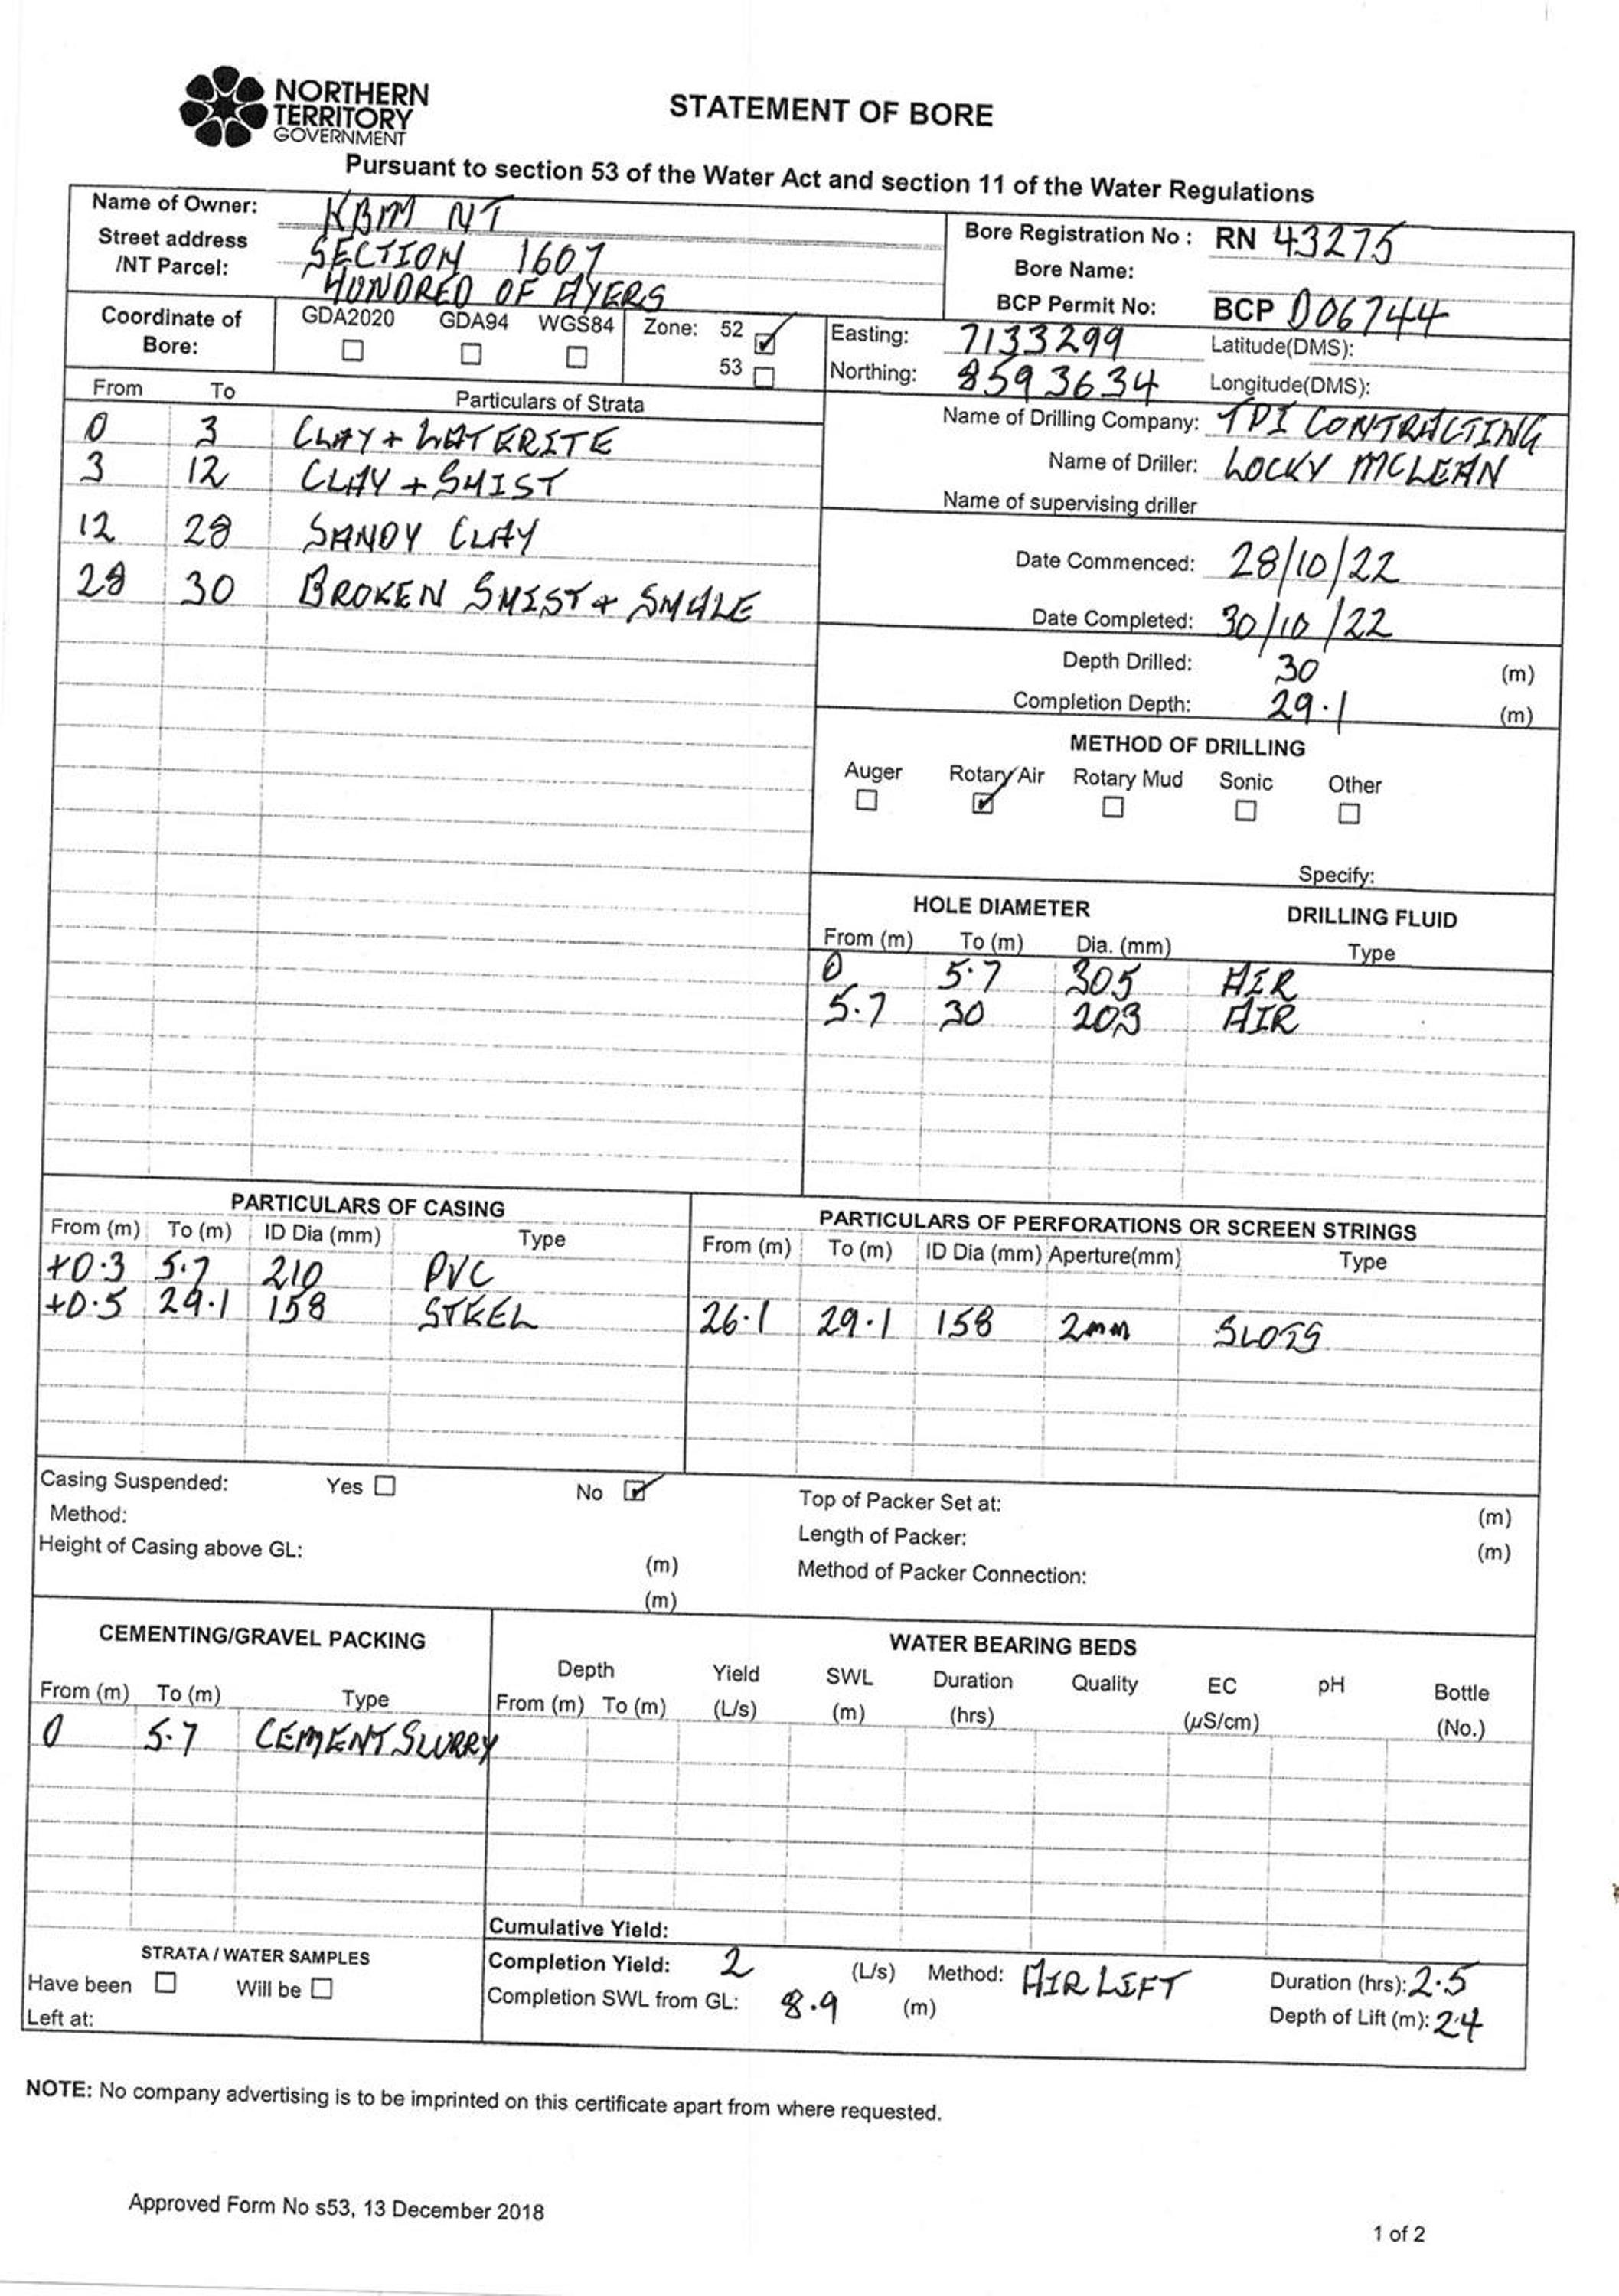 NORTHERN
TERRITORY
GOVERNMENT
STATEMENT OF BORE
Pursuant to section 53 of the Water Act and section 11 of the Water Regulations
Name of Owner: KBM NT
Street address SECTION 1607
/NT Parcel: HUNDRED OF AYERS
Bore Registration No : RN 43275
Bore Name:
BCP Permit No: BCP D06744
Coordinate of Bore: GDA2020 ☐ GDA94 ☐ WGS84 ☐ Zone: 52 ☑ 53 ☐
Easting: 7133299 Latitude(DMS):
Northing: 8593634 Longitude(DMS):
From To Particulars of Strata
0 3 CLAY + LATERITE
3 12 CLAY + SHIST
12 28 SANDY CLAY
28 30 BROKEN SHIST + SHALE
Name of Drilling Company: TDI CONTRACTING
Name of Driller: LOCKY MCLEAN
Name of supervising driller
Date Commenced: 28/10/22
Date Completed: 30/10/22
Depth Drilled: 30 (m)
Completion Depth: 29.1 (m)
METHOD OF DRILLING
Auger ☐ Rotary Air ☑ Rotary Mud ☐ Sonic ☐ Other ☐
Specify:
HOLE DIAMETER DRILLING FLUID
From (m) To (m) Dia. (mm) Type
0 5.7 305 AIR
5.7 30 203 AIR
PARTICULARS OF CASING
From (m) To (m) ID Dia (mm) Type
+0.3 5.7 210 PVC
+0.5 29.1 158 STEEL
PARTICULARS OF PERFORATIONS OR SCREEN STRINGS
From (m) To (m) ID Dia (mm) Aperture(mm) Type
26.1 29.1 158 2mm SLOTS
Casing Suspended: Yes ☐ No ☑
Method:
Height of Casing above GL: (m)
(m)
Top of Packer Set at: (m)
Length of Packer: (m)
Method of Packer Connection:
CEMENTING/GRAVEL PACKING
From (m) To (m) Type
0 5.7 CEMENT SLURRY
WATER BEARING BEDS
Depth Yield SWL Duration Quality EC pH Bottle
From (m) To (m) (L/s) (m) (hrs) (µS/cm) (No.)
Cumulative Yield:
STRATA / WATER SAMPLES
Have been ☐ Will be ☐
Left at:
Completion Yield: 2 (L/s) Method: AIR LIFT Duration (hrs): 2.5
Completion SWL from GL: 8.9 (m) Depth of Lift (m): 24
NOTE: No company advertising is to be imprinted on this certificate apart from where requested.
Approved Form No s53, 13 December 2018
1 of 2